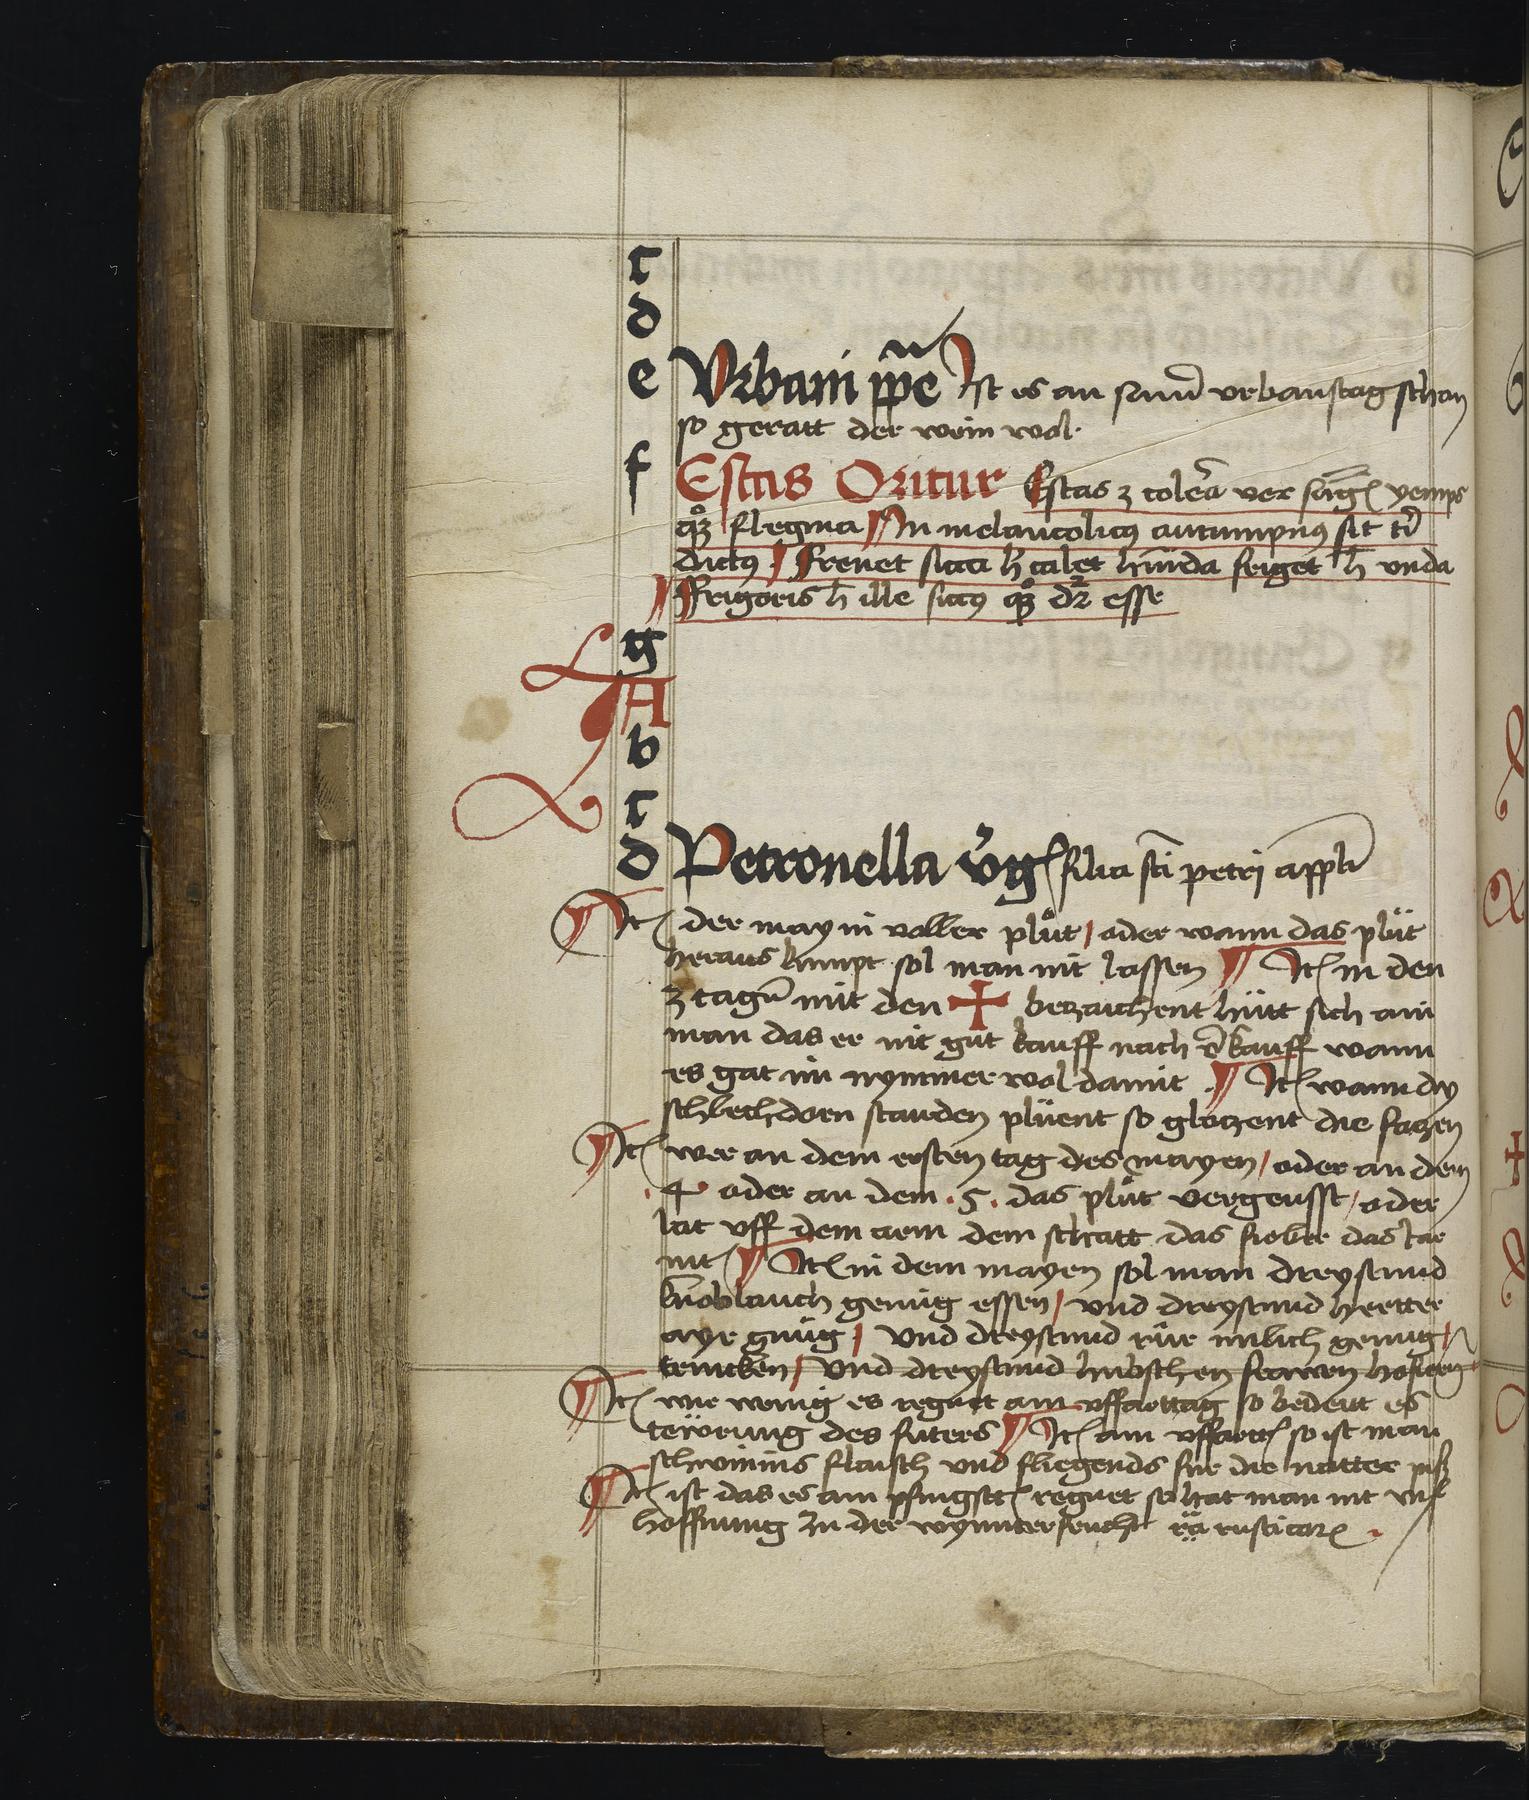 c
d
e Urbani ppe Ist es an sand urbanstag schon
so geratt der wein wol.
f Estas Oritur Estas z colera ver sāg yemps
qz flegma In melancolicus autumpnus sit
dictus Frenet sicca calet humida friget unda
Frigoris ille siccus qz esse
g
A
b
c
d Petronella v̄g filia sti petri appli
It der may in voller plůt / oder wann das plüt
heraus kumpt sol man nit lassen It in den
3 tagn̄ mit den + bezaichent hütt sich ain
man das er nit gut kauff nach v̄kauff wann
es gat im nymmer wol damit It wann dy
schlechdorn stauden plüent so glozent die
It wer an dem ersten tag des mayen / oder an dem
.4. oder an dem .5. das plůt vergeusst / oder
lat uff dem arm dem schatt das fieber das Jar
nit It in dem mayen sol man dreystund
knoblauch genüg essen / und dreystund hertter
ayr gnüg / und dreystund milich genug
trincken / und dreystund hubschen frawen
It wie wenig es regnet am uffarttag so bedeut es
tewrung des futers It am uffartt so ist man
schweinins flaisch und fliegends für die natter
It ist das es am pfingstt regnet so hat man nit
hoffnung zu der wynnterfrucht rusticorz